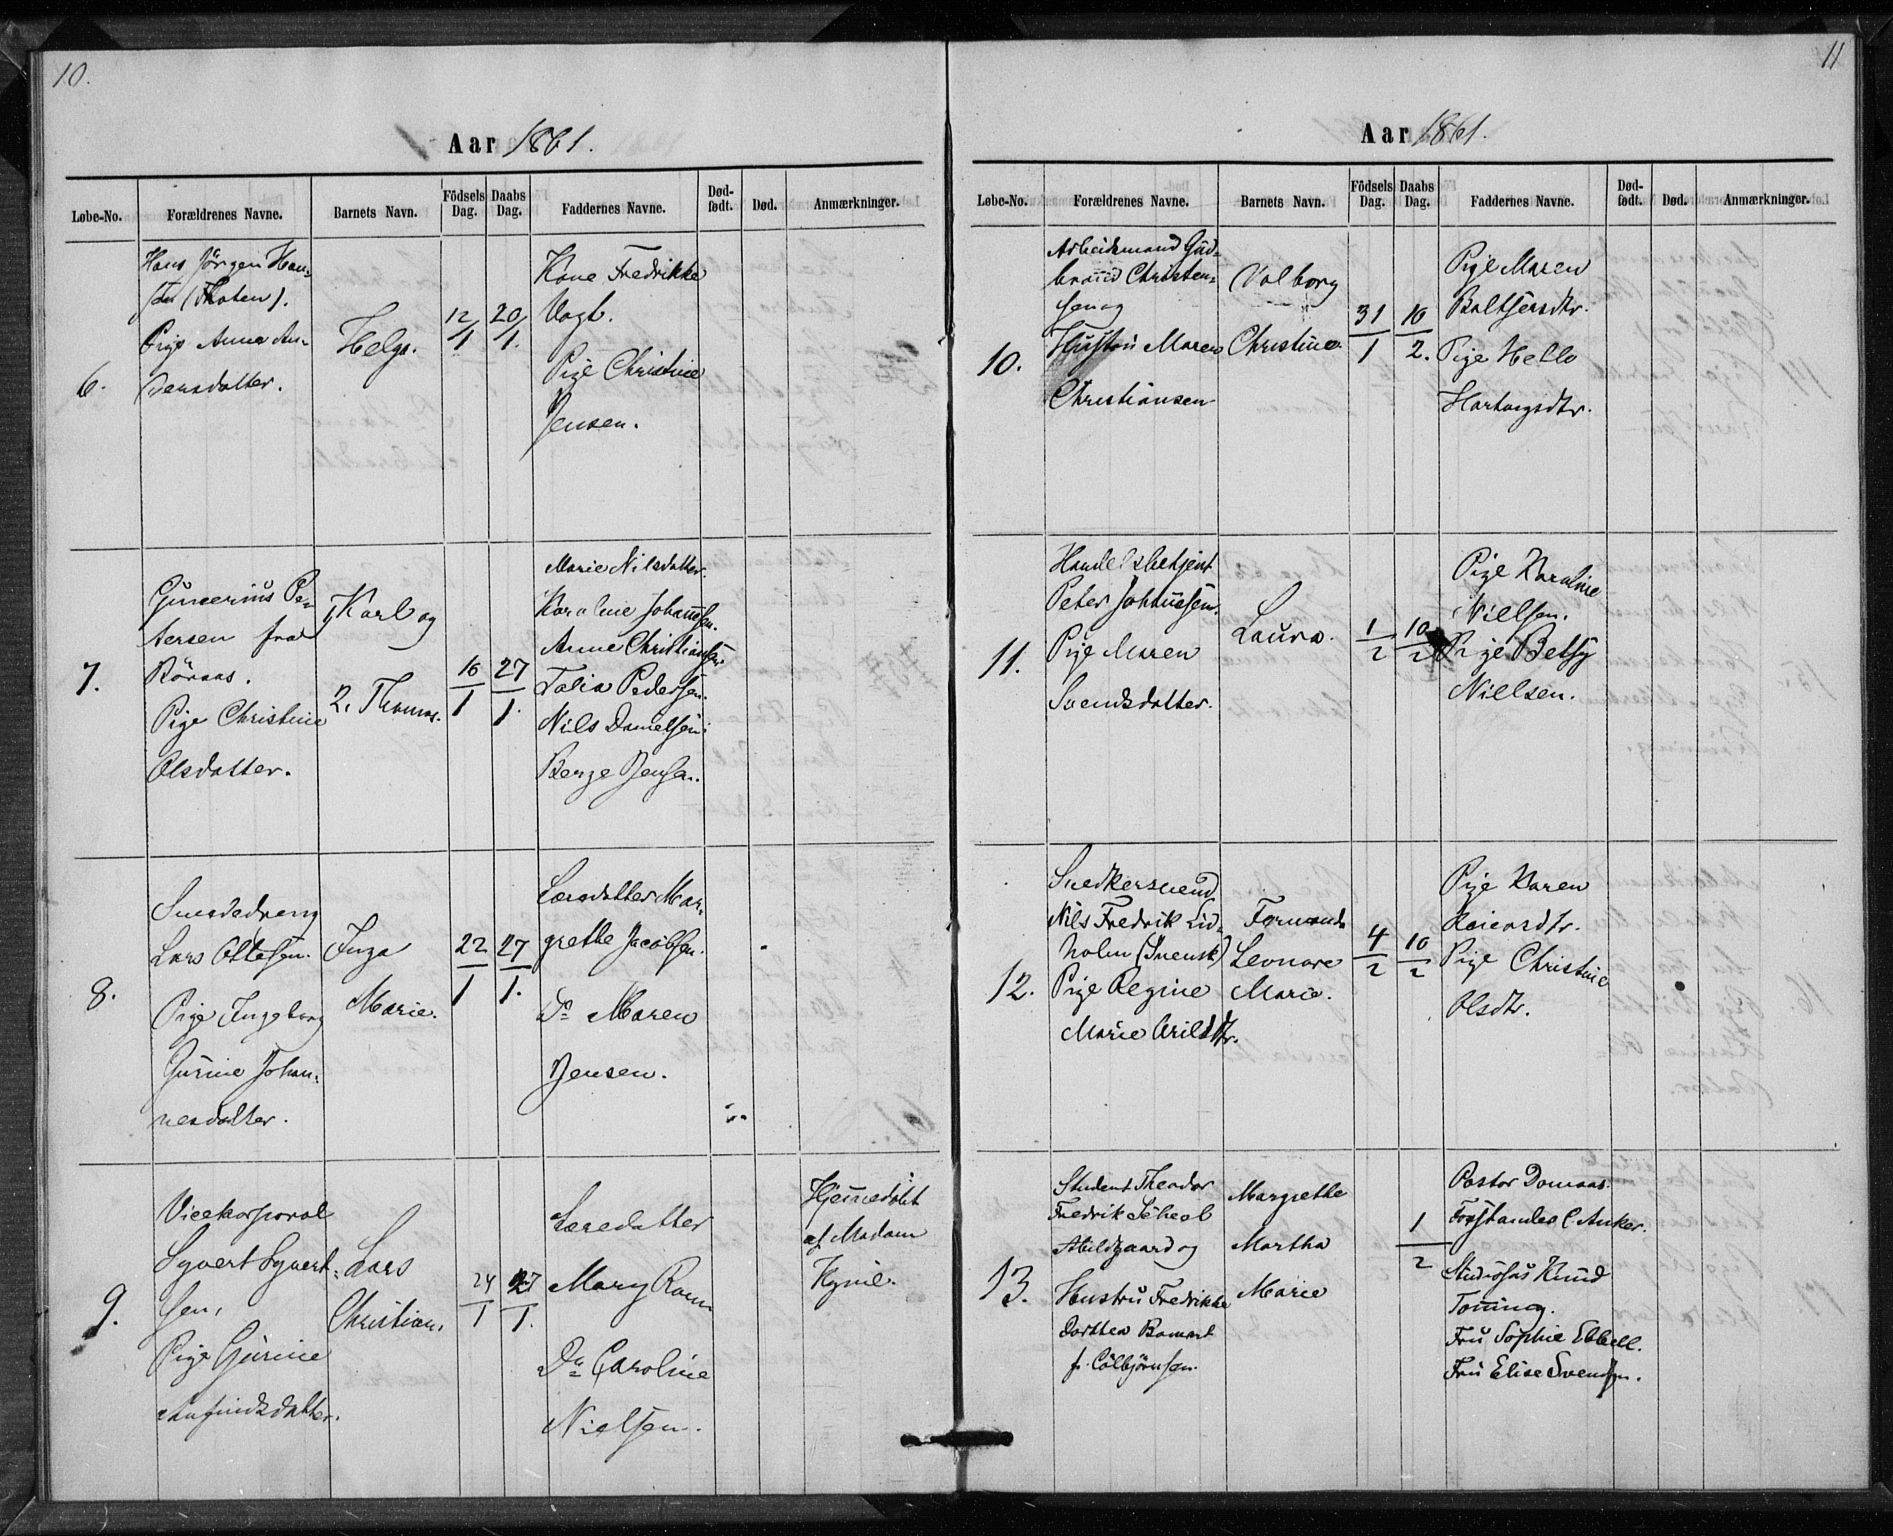 10.
Aar 1861.
Løbe-No. Forældrenes Navne. Barnets Navn. Födsels Dag. Daabs Dag. Faddernes Navne. Død-født. Død. Anmærkninger.
6.
Hans Jörgen Han-
sen (Thoten).
Pige Anne An-
dersdatter.
Helga.
12/1
20/1.
Kone Fredrikke
Vogt.
Pige Christine
Jensen.
7.
Gunerius Pe-
tersen fra
Röraas.
Pige Christine
Olsdatter.
1, Karl og
2. Thomas.
16/1
27/1.
Marie Nilsdatter.
Karoline Johansen.
Anne Christiansen.
Talia Pedersen.
Nils Danielsen.
Berge Jensen.
8.
Smededreng
Lars Ottesen.
Pige Ingeborg
Gurine Johan-
nesdatter.
Inga
Marie.
22/1
27/1.
Læredatter Mar-
grethe Jacobsen.
Do Maren
Jensen.
9.
Vicekorporal
Syvert Syvert-
sen,
Pige Gurine
Anfindsdatter.
Lars
Christian.
24/1
27/1.
Læredatter
Mary Ram
Do Caroline
Nielsen.
Hjemmedöbt
af Madam
11
Aar 1861.
Løbe-No. Forældrenes Navne. Barnets Navn. Födsels Dag. Daabs Dag. Faddernes Navne. Død-født. Død. Anmærkninger.
10.
Arbeidsmand Gud-
brand Christen-
sen og
Hustru Maren
Christiansen
Valborg
Christine.
31/1
10/2.
Pige Maren
Baltsersdtr.
Pige Helle
Hartvigsdtr.
11.
Handelsbetjent
Peter Johnsen.
Pige Maren
Svendsdatter.
Laura.
1/2
10/2
Pige Karoline
Nielsen.
Pige Betsy
Nielsen.
12.
Snedkersvend
Nils Fredrik Lid-
holm (Svensk)
Pige Regine
Marie Arildsdtr.
Fernanda
Leonore
Marie.
4/2
10/2
Pige Karen
Pige Christine
Olsdtr.
13.
Student Theodor
Fredrik Scheel
Abildgaard og
Hustru Fredrikke
Dorthea
f. Colbjörnsen.
Margrethe
Martha
Marie
1/2
Pastor Domaas.
Forstander C Anker.
Studiosus Knud
Tonning.
Fru Sophie Ebbell.
Fru Elise Svendsen.